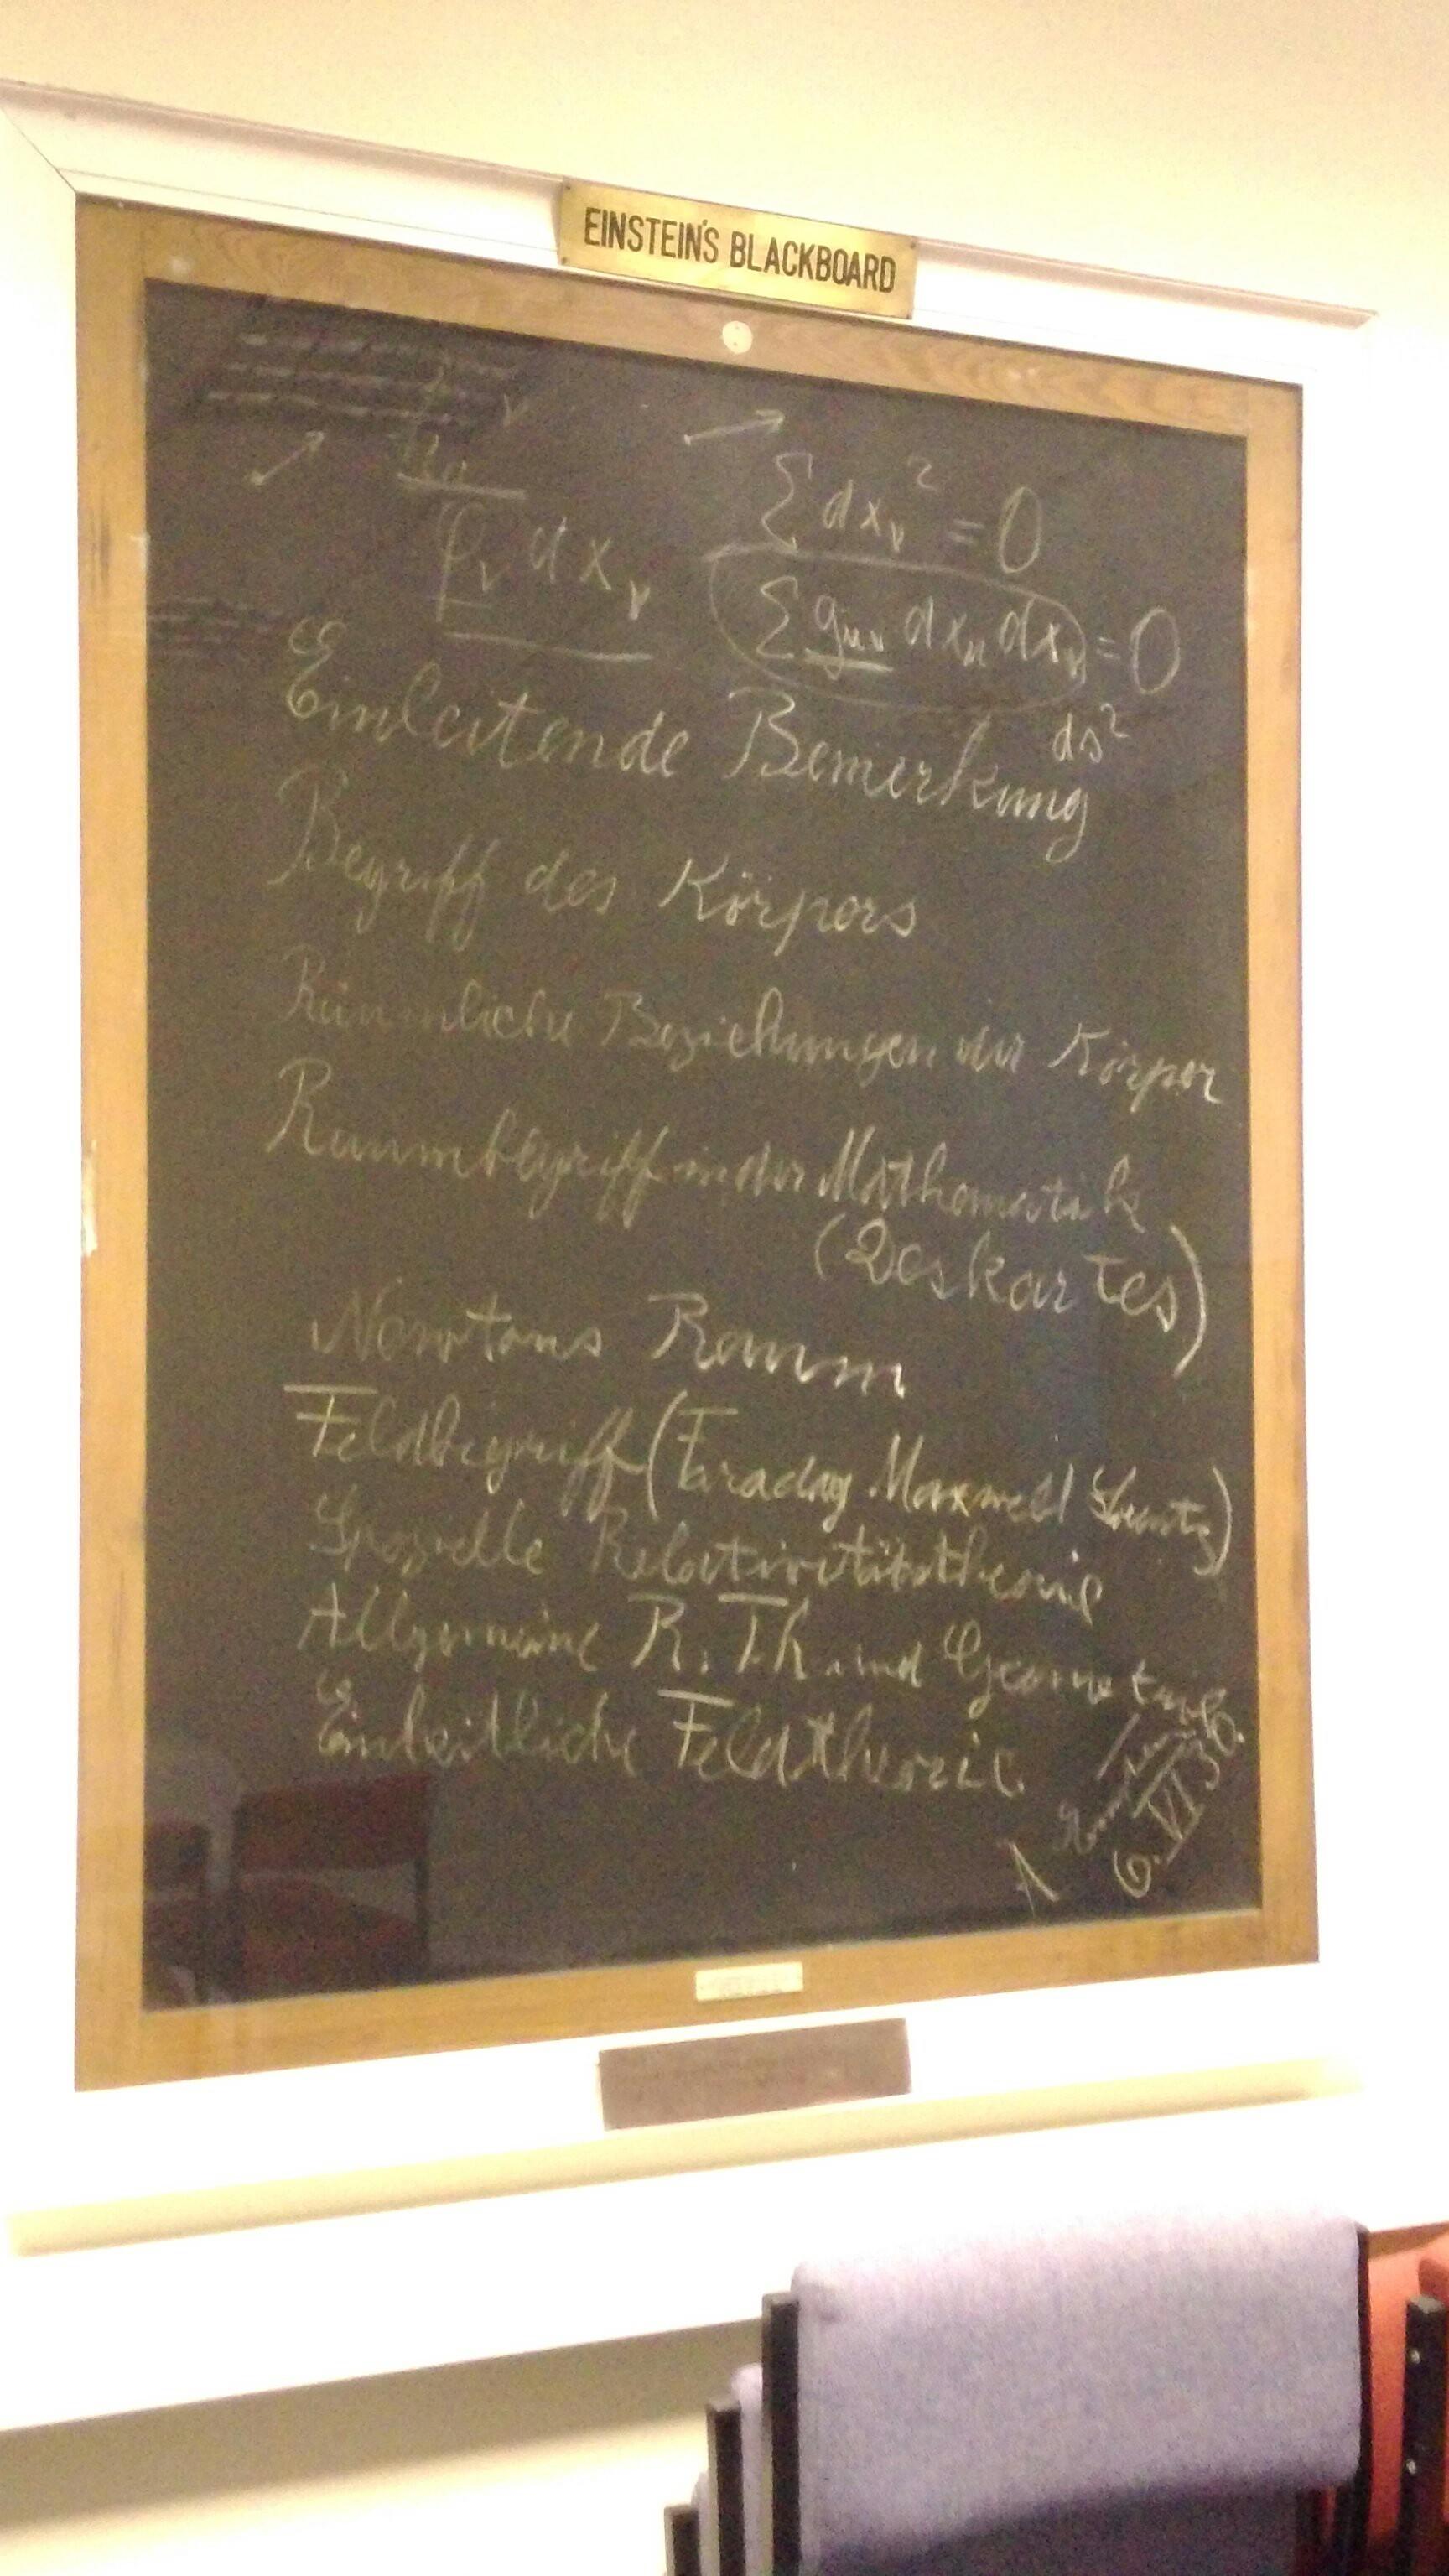 EINSTEIN'S BLACKBOARD
Σ dxᵥ² = 0
φᵥ dxᵥ
Σ gμν dxμ dxν = 0
ds²
Einleitende Bemerkung
Begriff des Körpers
Räumliche Beziehungen der Körper
Raumbegriff in der Mathematik
(Deskartes)
Newtons Raum
Feldbegriff (Faraday Maxwell Lorentz)
Spezielle Relativitätstheorie
Allgemeine R. Th. und Geometrie
Einheitliche Feldtheorie.
A
6. VI 30.